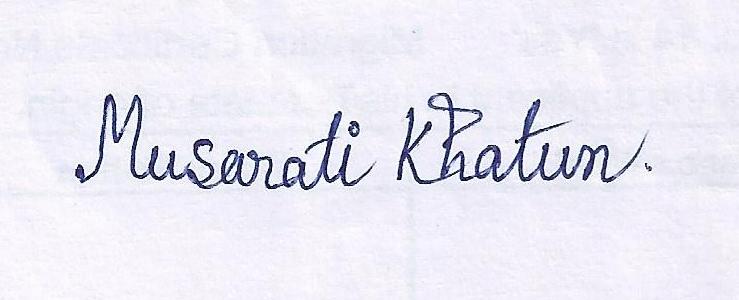 Musarati Khatun.